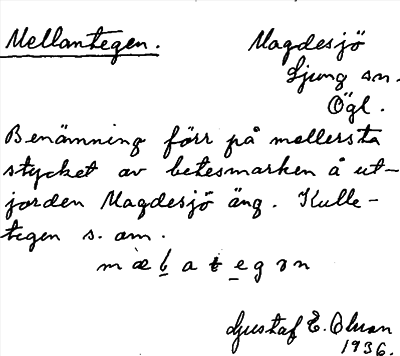 Mellantegen.
Magdesjö
Ljung sn.
Ögl.
Benämning förr på mellersta
stycket av betesmarken å ut-
jorden Magdesjö äng. Kulle-
tegen s. om.
Gustaf E. Olsson
1936.